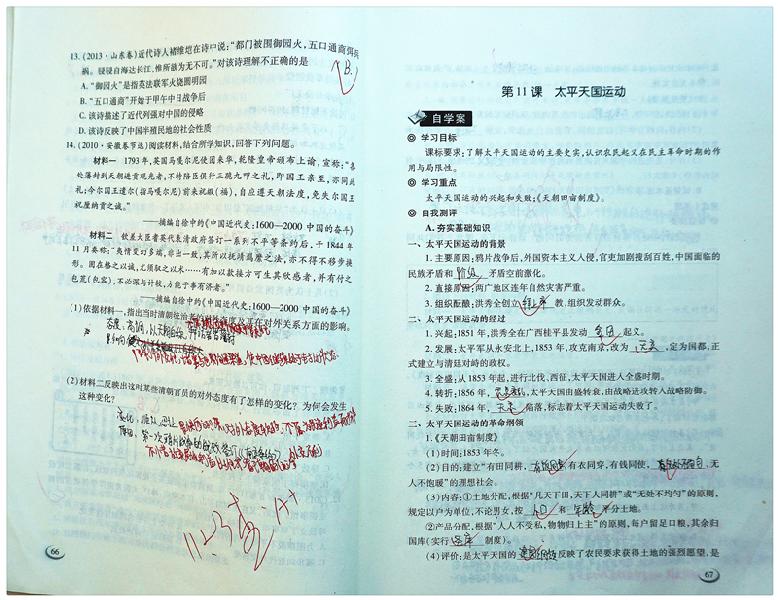 13.(2013·山东卷)近代诗人褚维垲在诗中说:“都门被围御园火,五口通商弭兵
祸。骎骎自海达长江,惟所欲为无不可。”对该诗理解不正确的是
(B.)
A.“御园火”是指英法联军火烧圆明园
B.“五口通商”开始于甲午中日战争后
C.该诗描述了近代列强对中国的侵略
D.该诗反映了中国半殖民地的社会性质
14.(2010·安徽春节送)阅读材料,结合所学知识,回答下列问题。
材料一 1793年,英国马戛尔尼使团来华,乾隆皇帝颁布上谕,宣称:“各
处藩封到天朝进贡观光者,不特陪臣俱行三跪九叩之礼,即国王亲至,亦同此
礼;今尔国王遣尔(指马戛尔尼)前来祝嘏(福),自应遵天朝法度,免失尔国王
祝釐纳贡之诚。”
——摘编自徐中约《中国近代史:1600—2000 中国的奋斗》
材料二 钦差大臣耆英代表清政府签订一系列不平等条约后,于1844年
11月奏称:“夷情变幻多端,非出一致,其所以抚绥羁縻之法,亦不得不移步换
形。固在格之以诚,尤须驭之以术……有加以款接方可生其欣感者,并有付之
包荒(包容),不必深与计较,方能于事有济者。”
——摘编自徐中约《中国近代史:1600—2000 中国的奋斗》
(1)依据材料一,指出当时清朝统治者的对外态度及其在对外关系方面的影响。
(2)材料二反映出这时某些清朝官员的对外态度有了怎样的变化?为何会发生
这种变化?
66
第11课 太平天国运动
自学案
学习目标
课标要求:了解太平天国运动的主要史实,认识农民起义在民主革命时期的作
用与局限性。
学习重点
太平天国运动的兴起和失败;《天朝田亩制度》。
自我测评
A.夯实基础知识
一、太平天国运动的背景
1.主要原因:鸦片战争后,外国资本主义入侵,官吏加剧搜刮百姓,中国面临的
民族矛盾和 阶级 矛盾空前激化。
2.直接原因:两广地区连年自然灾害严重。
3.组织酝酿:洪秀全创立 拜上帝 教,组织发动群众。
二、太平天国运动的经过
1.兴起:1851年,洪秀全在广西桂平县发动 金田 起义。
2.发展:太平军从永安北上,1853年,攻克南京,改为 天京 ,定为国都,正
式建立与清廷对峙的政权。
3.全盛:从1853年起,进行北伐、西征,太平天国进入全盛时期。
4.转折:1856年, 天京变乱 ,太平天国由盛转衰,由战略进攻转入战略防御。
5.失败:1864年, 天京 陷落,标志着太平天国运动失败了。
二、太平天国运动的革命纲领
1.《天朝田亩制度》
(1)时间:1853年冬。
(2)目的:建立“有田同耕, 有饭同食 有衣同穿,有钱同使, 无处不均匀 ,无
人不饱暖”的理想社会。
(3)内容:①土地分配,根据“凡天下田,天下人同耕”或“无处不均匀”的原则,
规定以户为单位,不论男女,按 人口 和 年龄 平分土地。
②产品分配,根据“人人不受私,物物归上主”的原则,每户留足口粮,其余归
国库(实行 圣库 制度)。
(4)评价:是太平天国的 反映了农民要求获得土地的强烈愿望,是
67